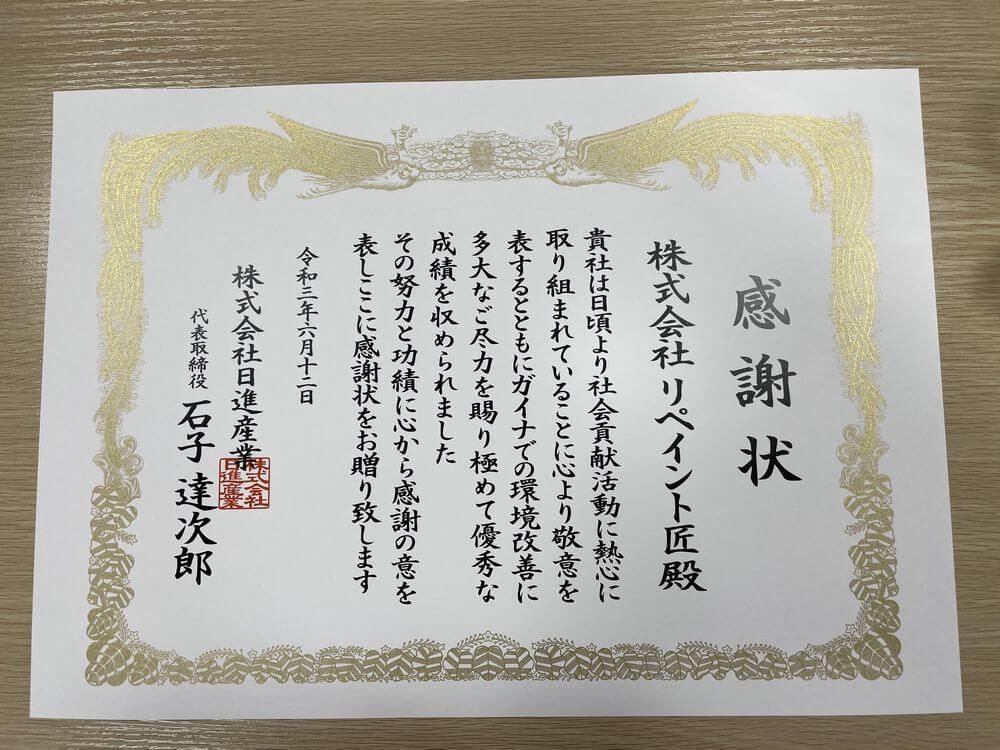 感謝状
株式会社 リペイント匠殿
貴社は日頃より社会貢献活動に熱心に
取り組まれていることに心より敬意を
表するとともにガイナでの環境改善に
多大なご尽力を賜り極めて優秀な
成績を収められました
その努力と功績に心から感謝の意を
表しここに感謝状をお贈り致します
令和三年六月十二日
株式会社日進産業
株式会社
日進産業
代表取締役 石子 達次郎